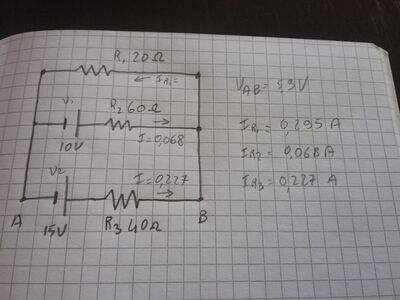 R₁ 20Ω
I R₁=
V₁
R₂ 60Ω
10V
I=0,068
V₂
I=0,227
A
15V
R₃ 40Ω
B
V_AB= 5,9V
I_R₁= 0,295 A
I_R₂= 0,068 A
I_R₃= 0,227 A